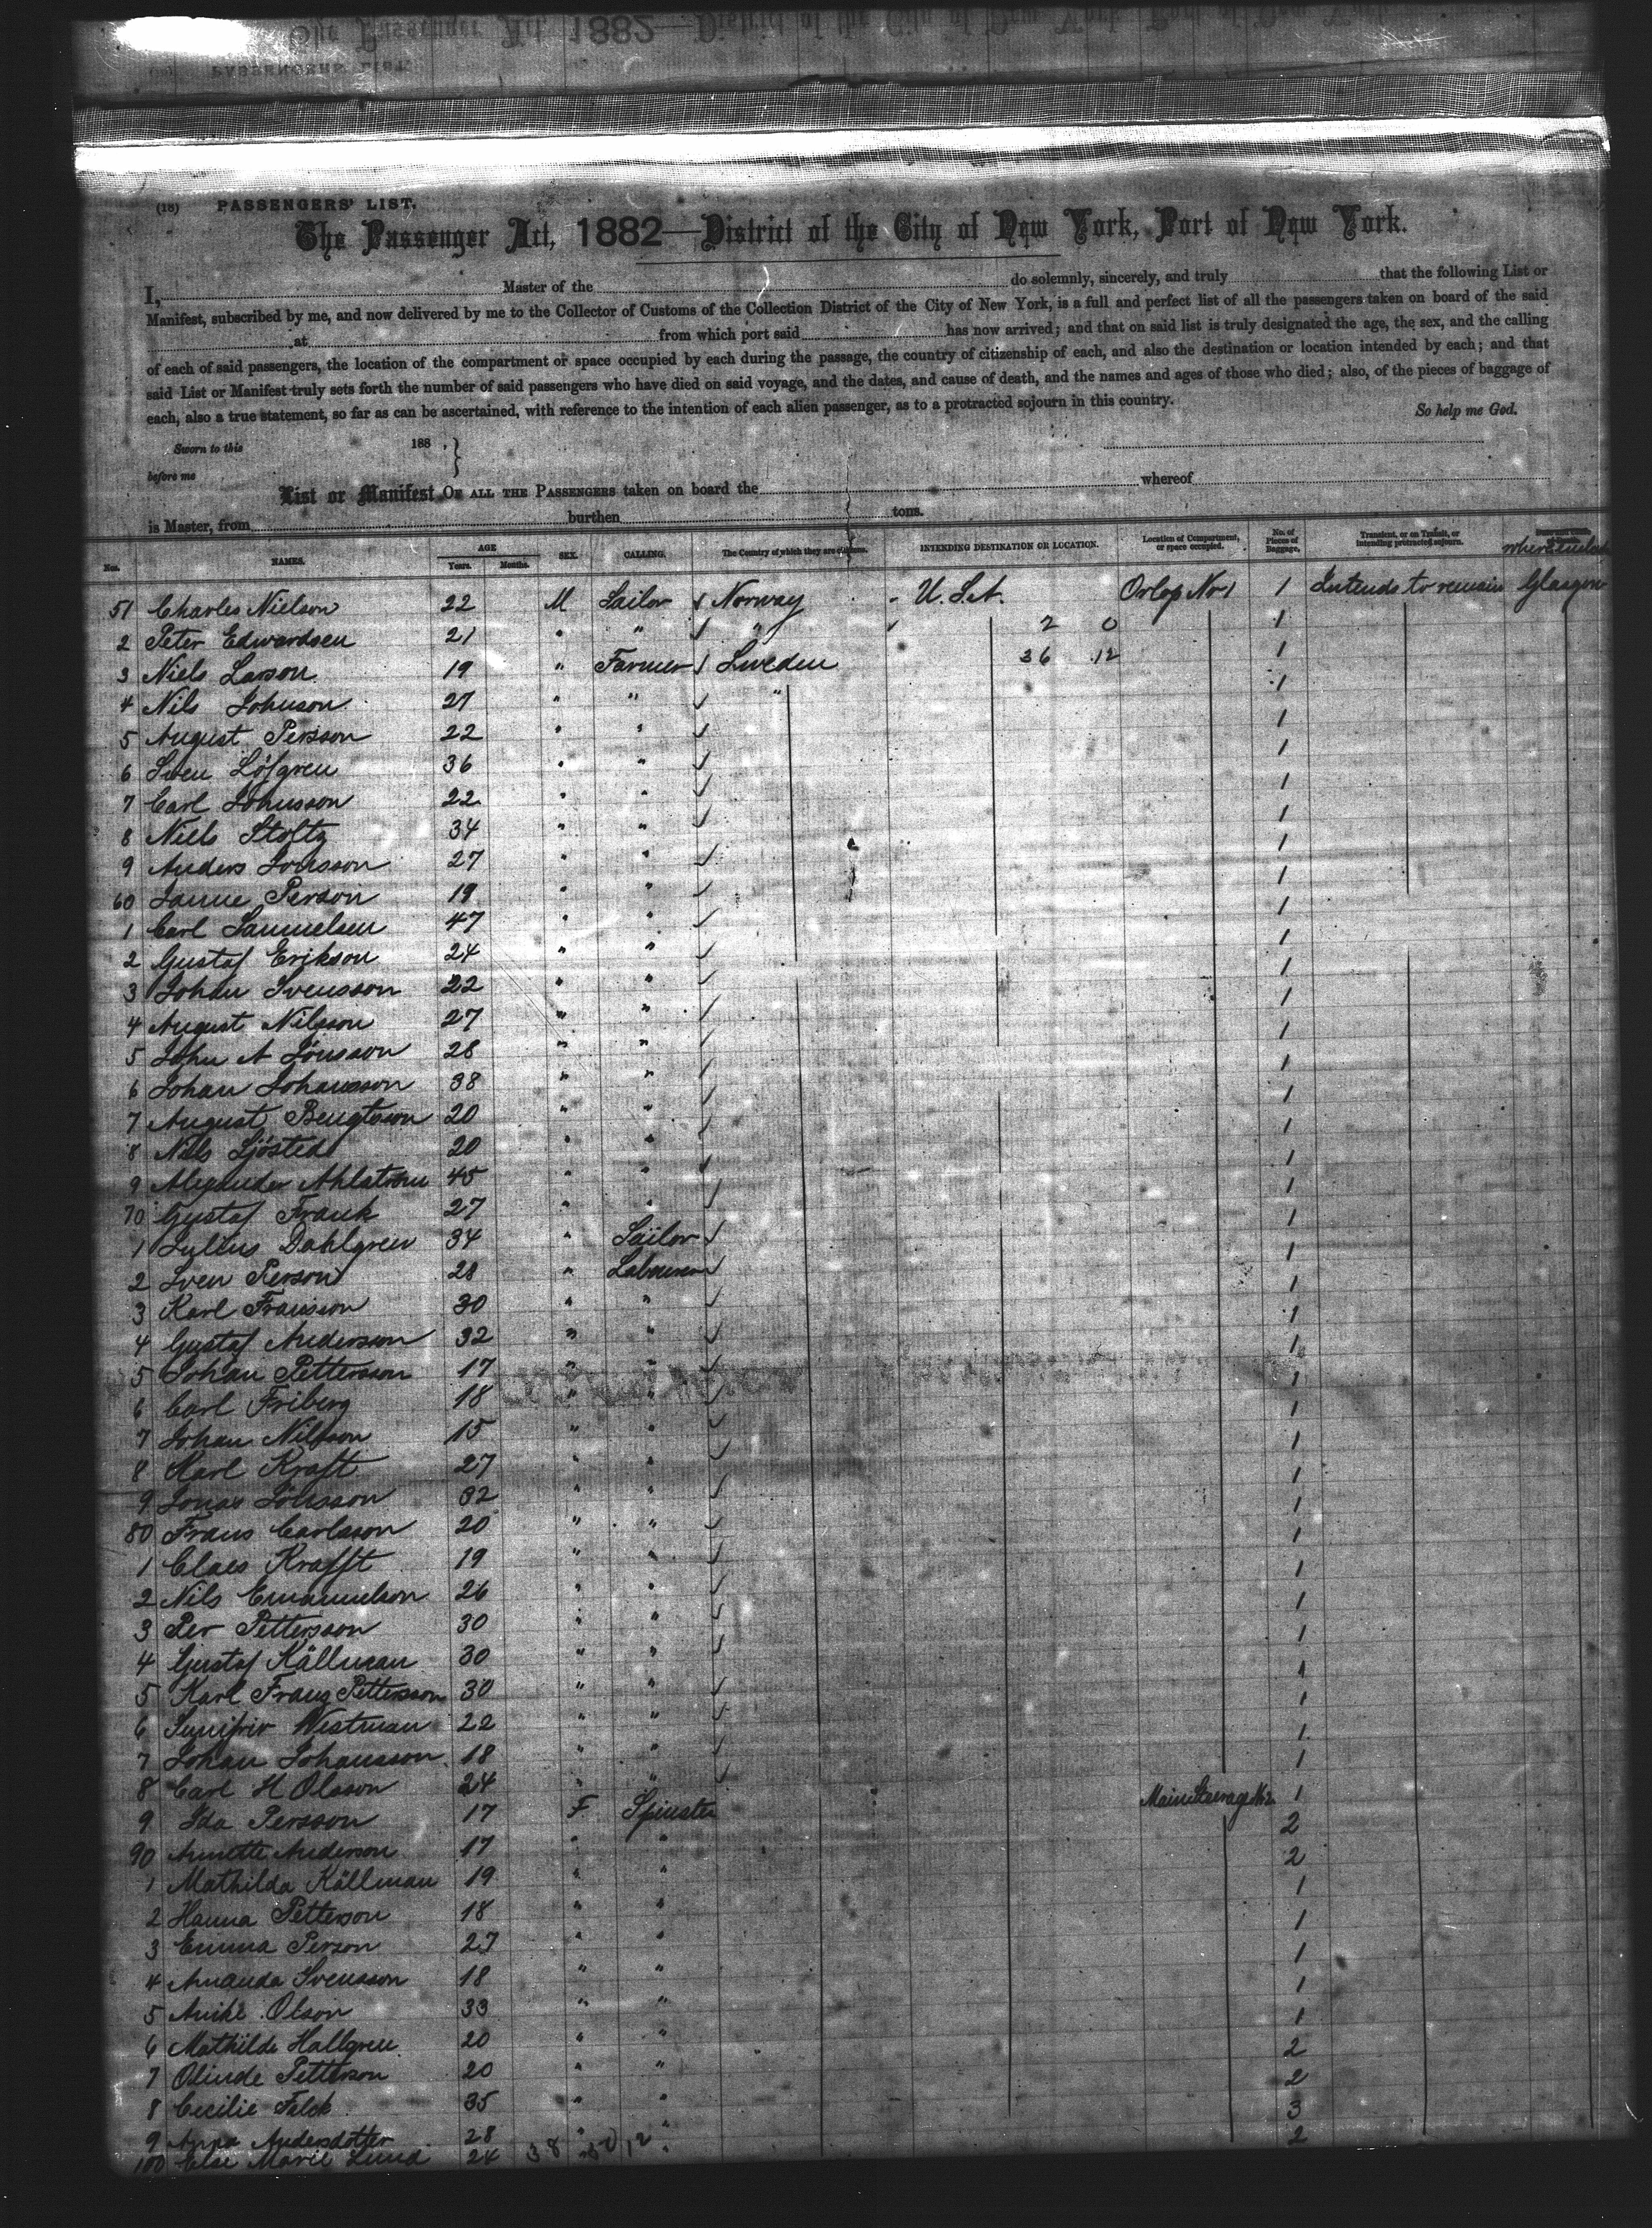 (18) PASSENGERS' LIST.
The Passenger Act, 1882—District of the City of New York, Port of New York.
I, Master of the do solemnly, sincerely, and truly that the following List or
Manifest, subscribed by me, and now delivered by me to the Collector of Customs of the Collection District of the City of New York, is a full and perfect list of all the passengers taken on board of the said
at from which port said has now arrived; and that on said list is truly designated the age, the sex, and the calling
of each of said passengers, the location of the compartment or space occupied by each during the passage, the country of citizenship of each, and also the destination or location intended by each; and that
said List or Manifest truly sets forth the number of said passengers who have died on said voyage, and the dates, and cause of death, and the names and ages of those who died; also, of the pieces of baggage of
each, also a true statement, so far as can be ascertained, with reference to the intention of each alien passenger, as to a protracted sojourn in this country. So help me God.
Sworn to this 188 . }
before me
List or Manifest OF ALL THE PASSENGERS taken on board the whereof
is Master, from burthen tons.
Nos. NAMES. AGE Years. Months. SEX. CALLING. The Country of which they are citizens. INTENDING DESTINATION OR LOCATION. Location of Compartment, or space occupied. No. of Pieces of Baggage. Transient, or on Transit, or intending protracted sojourn.
51 Charles Nielson 22 M Sailor Norway U.S.A. Orlop No 1 1 Intends to remain Glasgow
2 Peter Edwardsen 21 " " " 2 0 1
3 Niels Larson 19 " Farmer Sweden 36 12 1
4 Nils Johnson 27 " " " 1
5 August Persson 22 " " 1
6 Sven Löfgren 36 " " 1
7 Carl Johnsson 22 " " 1
8 Niels Stoltz 34 " " 1
9 Anders Jonsson 27 " " 1
60 Janne Person 19 " " 1
1 Carl Samuelsen 47 " " 1
2 Gustaf Erikson 24 " " 1
3 Johan Svensson 22 " " 1
4 August Nilsson 27 " " 1
5 John A Jönsson 28 " " 1
6 Johan Johansson 38 " " 1
7 August Bengtsson 20 " " 1
8 Nils Sjösted 20 " " 1
9 Alexander Ahlstrom 45 " " 1
70 Gustaf Frank 27 " " 1
1 Julius Dahlgren 34 " Sailor 1
2 Sven Person 28 " Labourer 1
3 Karl Fransson 30 " " 1
4 Gustaf Anderson 32 " " 1
5 Johan Pettersson 17 " " 1
6 Carl Friberg 18 " " 1
7 Johan Nilsson 15 " " 1
8 Karl Kraft 27 " " 1
9 Jonas Jönsson 32 " " 1
80 Frans Carlsson 20 " " 1
1 Claes Krafft 19 " " 1
2 Nils Emanuelson 26 " " 1
3 Per Pettersson 30 " " 1
4 Gustaf Källman 30 " " 1
5 Karl Franz Pettersson 30 " " 1
6 Westman 22 " " 1
7 Johan Johansson 18 " " 1
8 Carl H Olsson 24 " " 1
9 Ida Persson 17 F Spinster Main Steerage No 2 2
90 Annette Anderson 17 " " 2
1 Mathilda Källman 19 " " 1
2 Hanna Petterson 18 " " 1
3 Emma Person 27 " " 1
4 Amanda Svensson 18 " " 1
5 Olson 33 " " 1
6 Mathilde Hallgren 20 " " 2
7 Olinde Petterson 20 " " 2
8 Cecilie Falck 35 " " 3
9 Anna Andersdotter 28 " " 2
100 Else Marie Lund 24 38 12